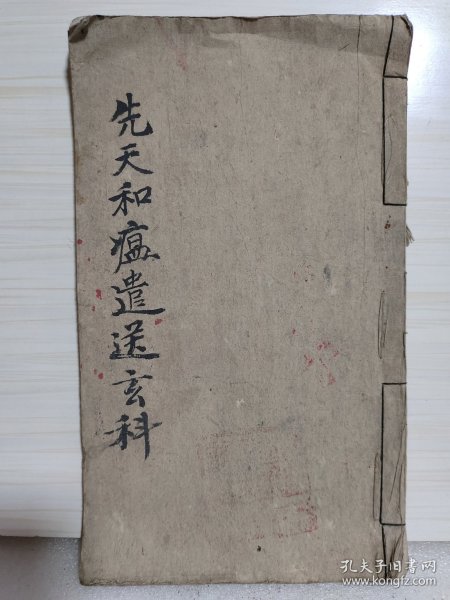 先天和瘟遣送玄科
孔夫子旧书网
www.kongfz.com